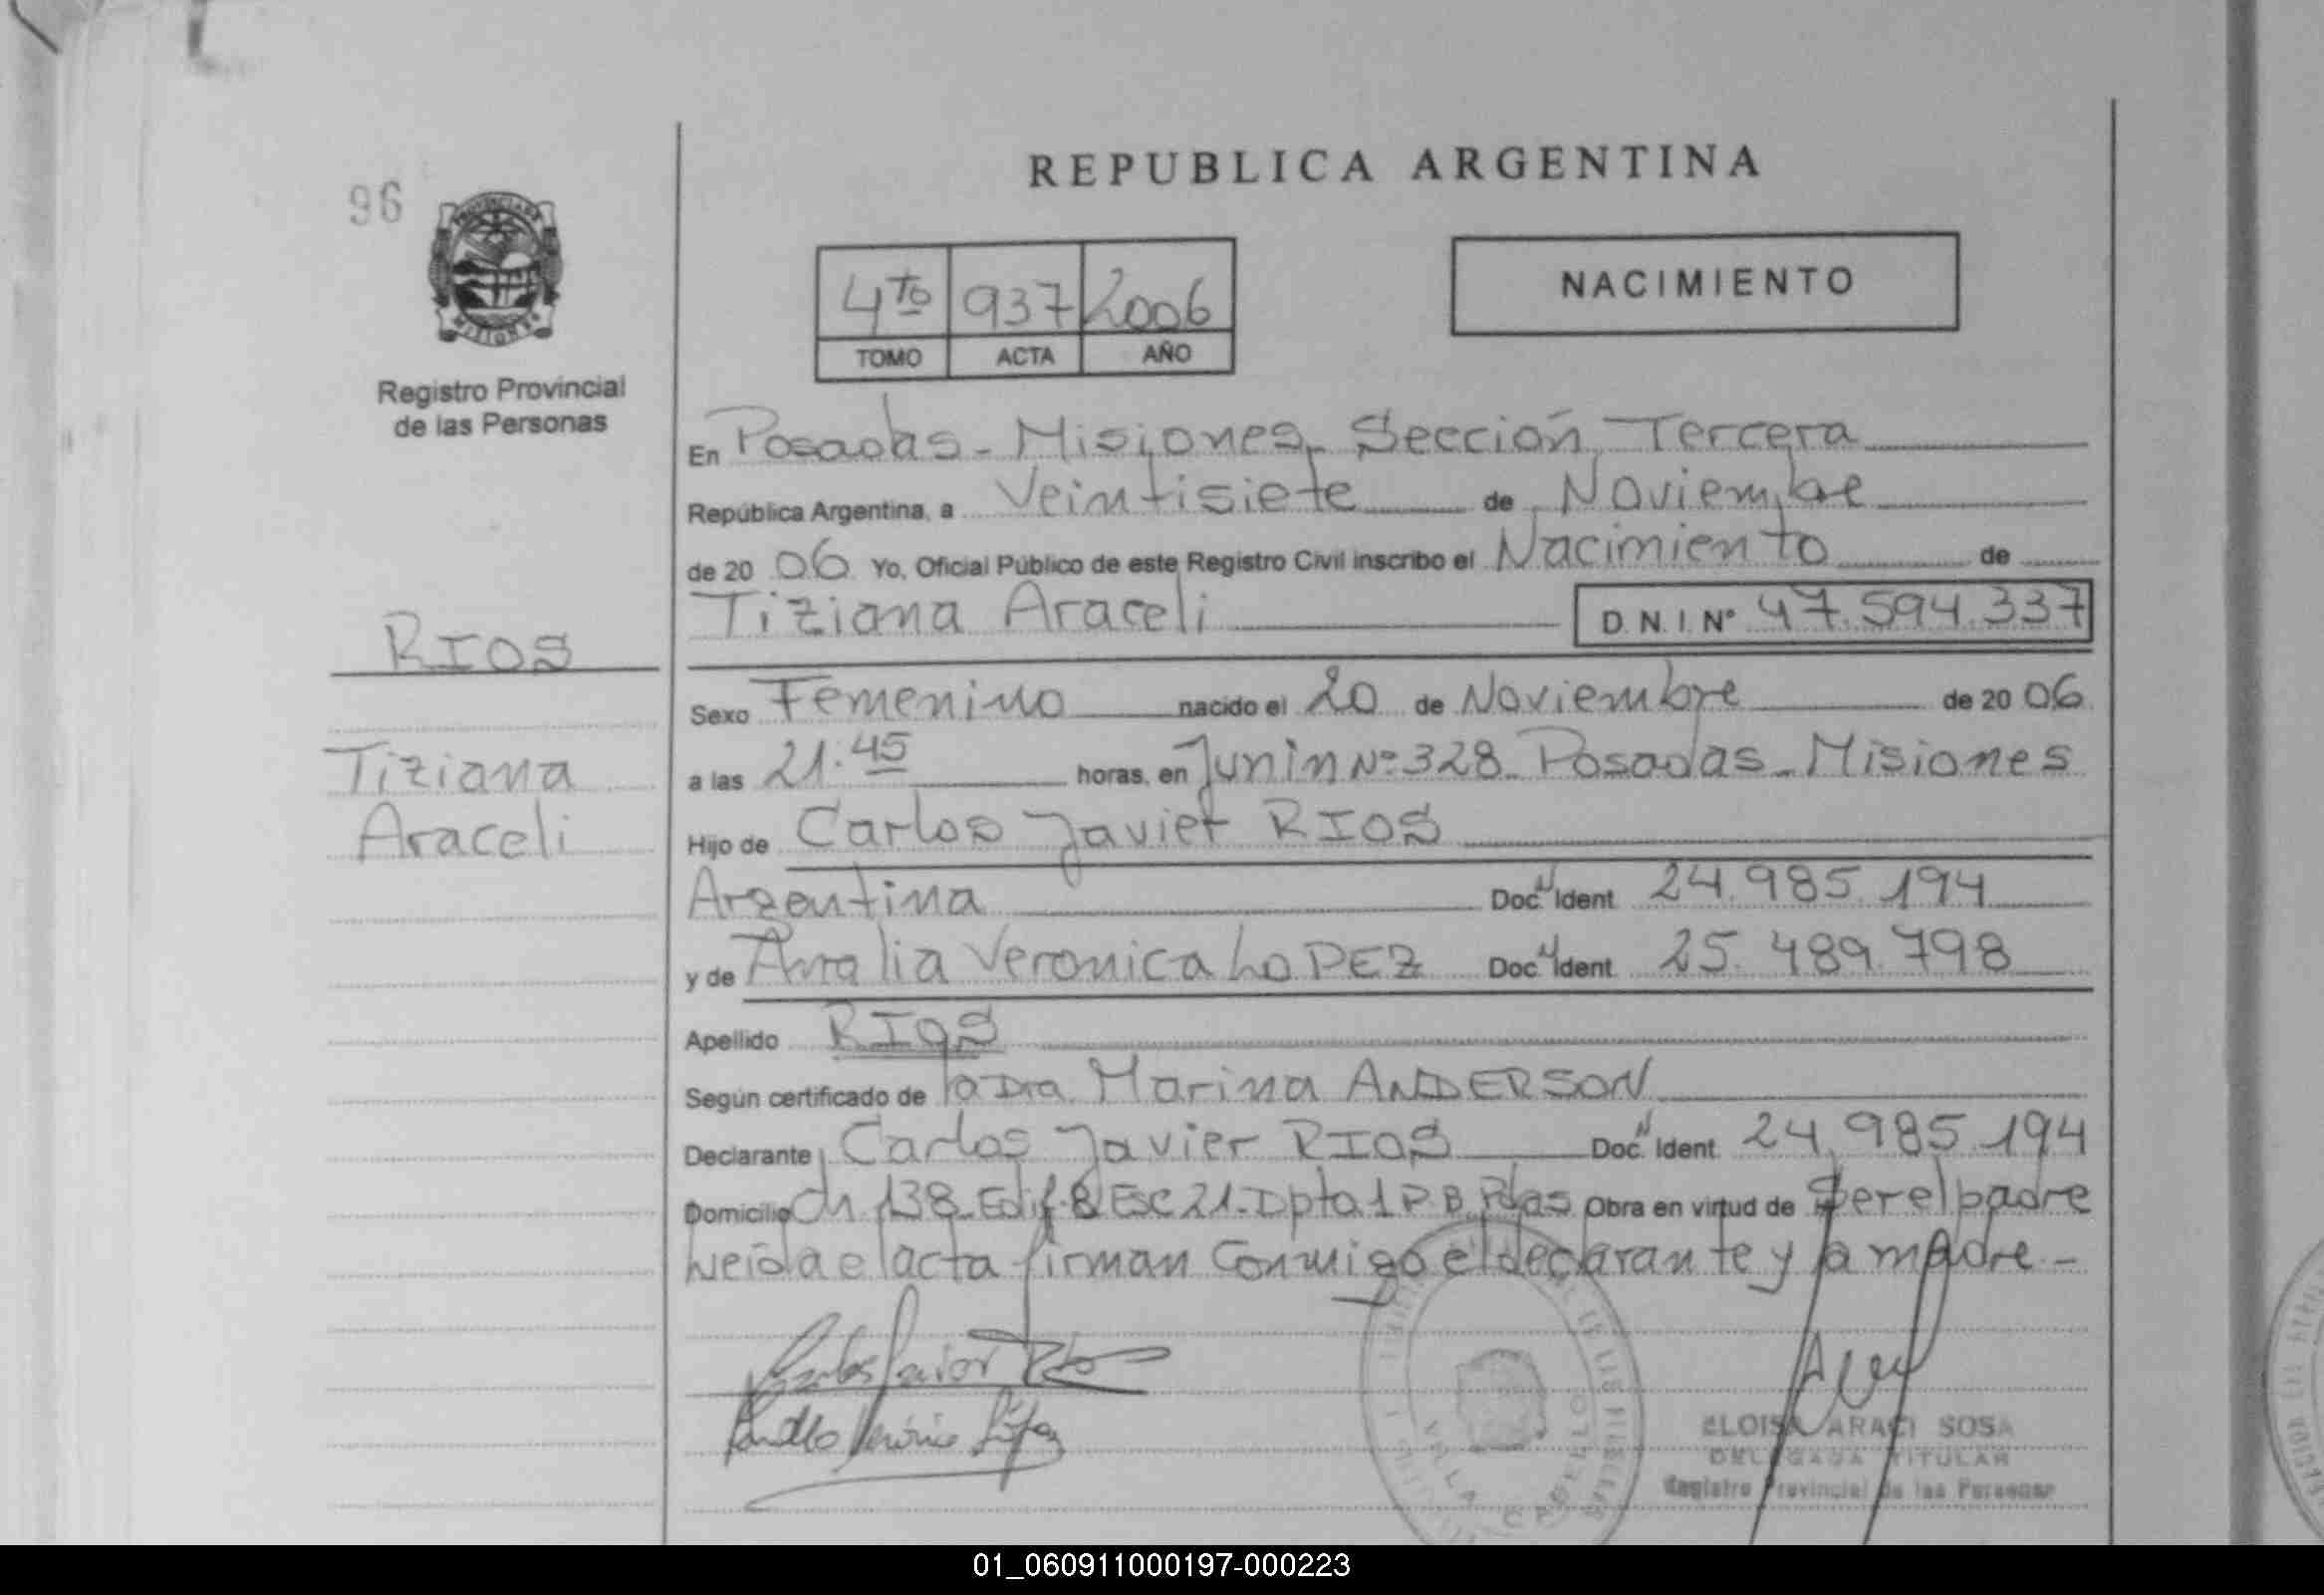 96
PROVINCIA DE
MISIONES
Registro Provincial
de las Personas
REPUBLICA ARGENTINA
4to 937 2006
TOMO ACTA AÑO
NACIMIENTO
En Posadas - Misiones - Sección Tercera
República Argentina, a Veintisiete de Noviembre
de 20 06 Yo, Oficial Público de este Registro Civil inscribo el Nacimiento de
Tiziana Araceli D.N.I. Nº 47.594.337
RIOS
Tiziana
Araceli
Sexo Femenino nacido el 20 de Noviembre de 20 06
a las 21:45 horas, en Junin Nº 328 - Posadas - Misiones
Hijo de Carlos Javier RIOS
Argentina Doc. Ident 24.985.194
y de Analia Veronica LOPEZ Doc. Ident 25.489.798
Apellido RIOS
Según certificado de la Dra Marina ANDERSON
Declarante Carlos Javier RIOS Doc. Ident 24.985.194
Domicilio Ch 138 - Edif. 8 Esc 21 - Dpto 1 P.B. Pdas Obra en virtud de Ser el padre
Leída el acta firman Conmigo el declarante y la madre -
VILLA CABELLO
ELOISA ARACI SOSA
DELEGADA TITULAR
Registro Provincial de las Personas
01_060911000197-000223